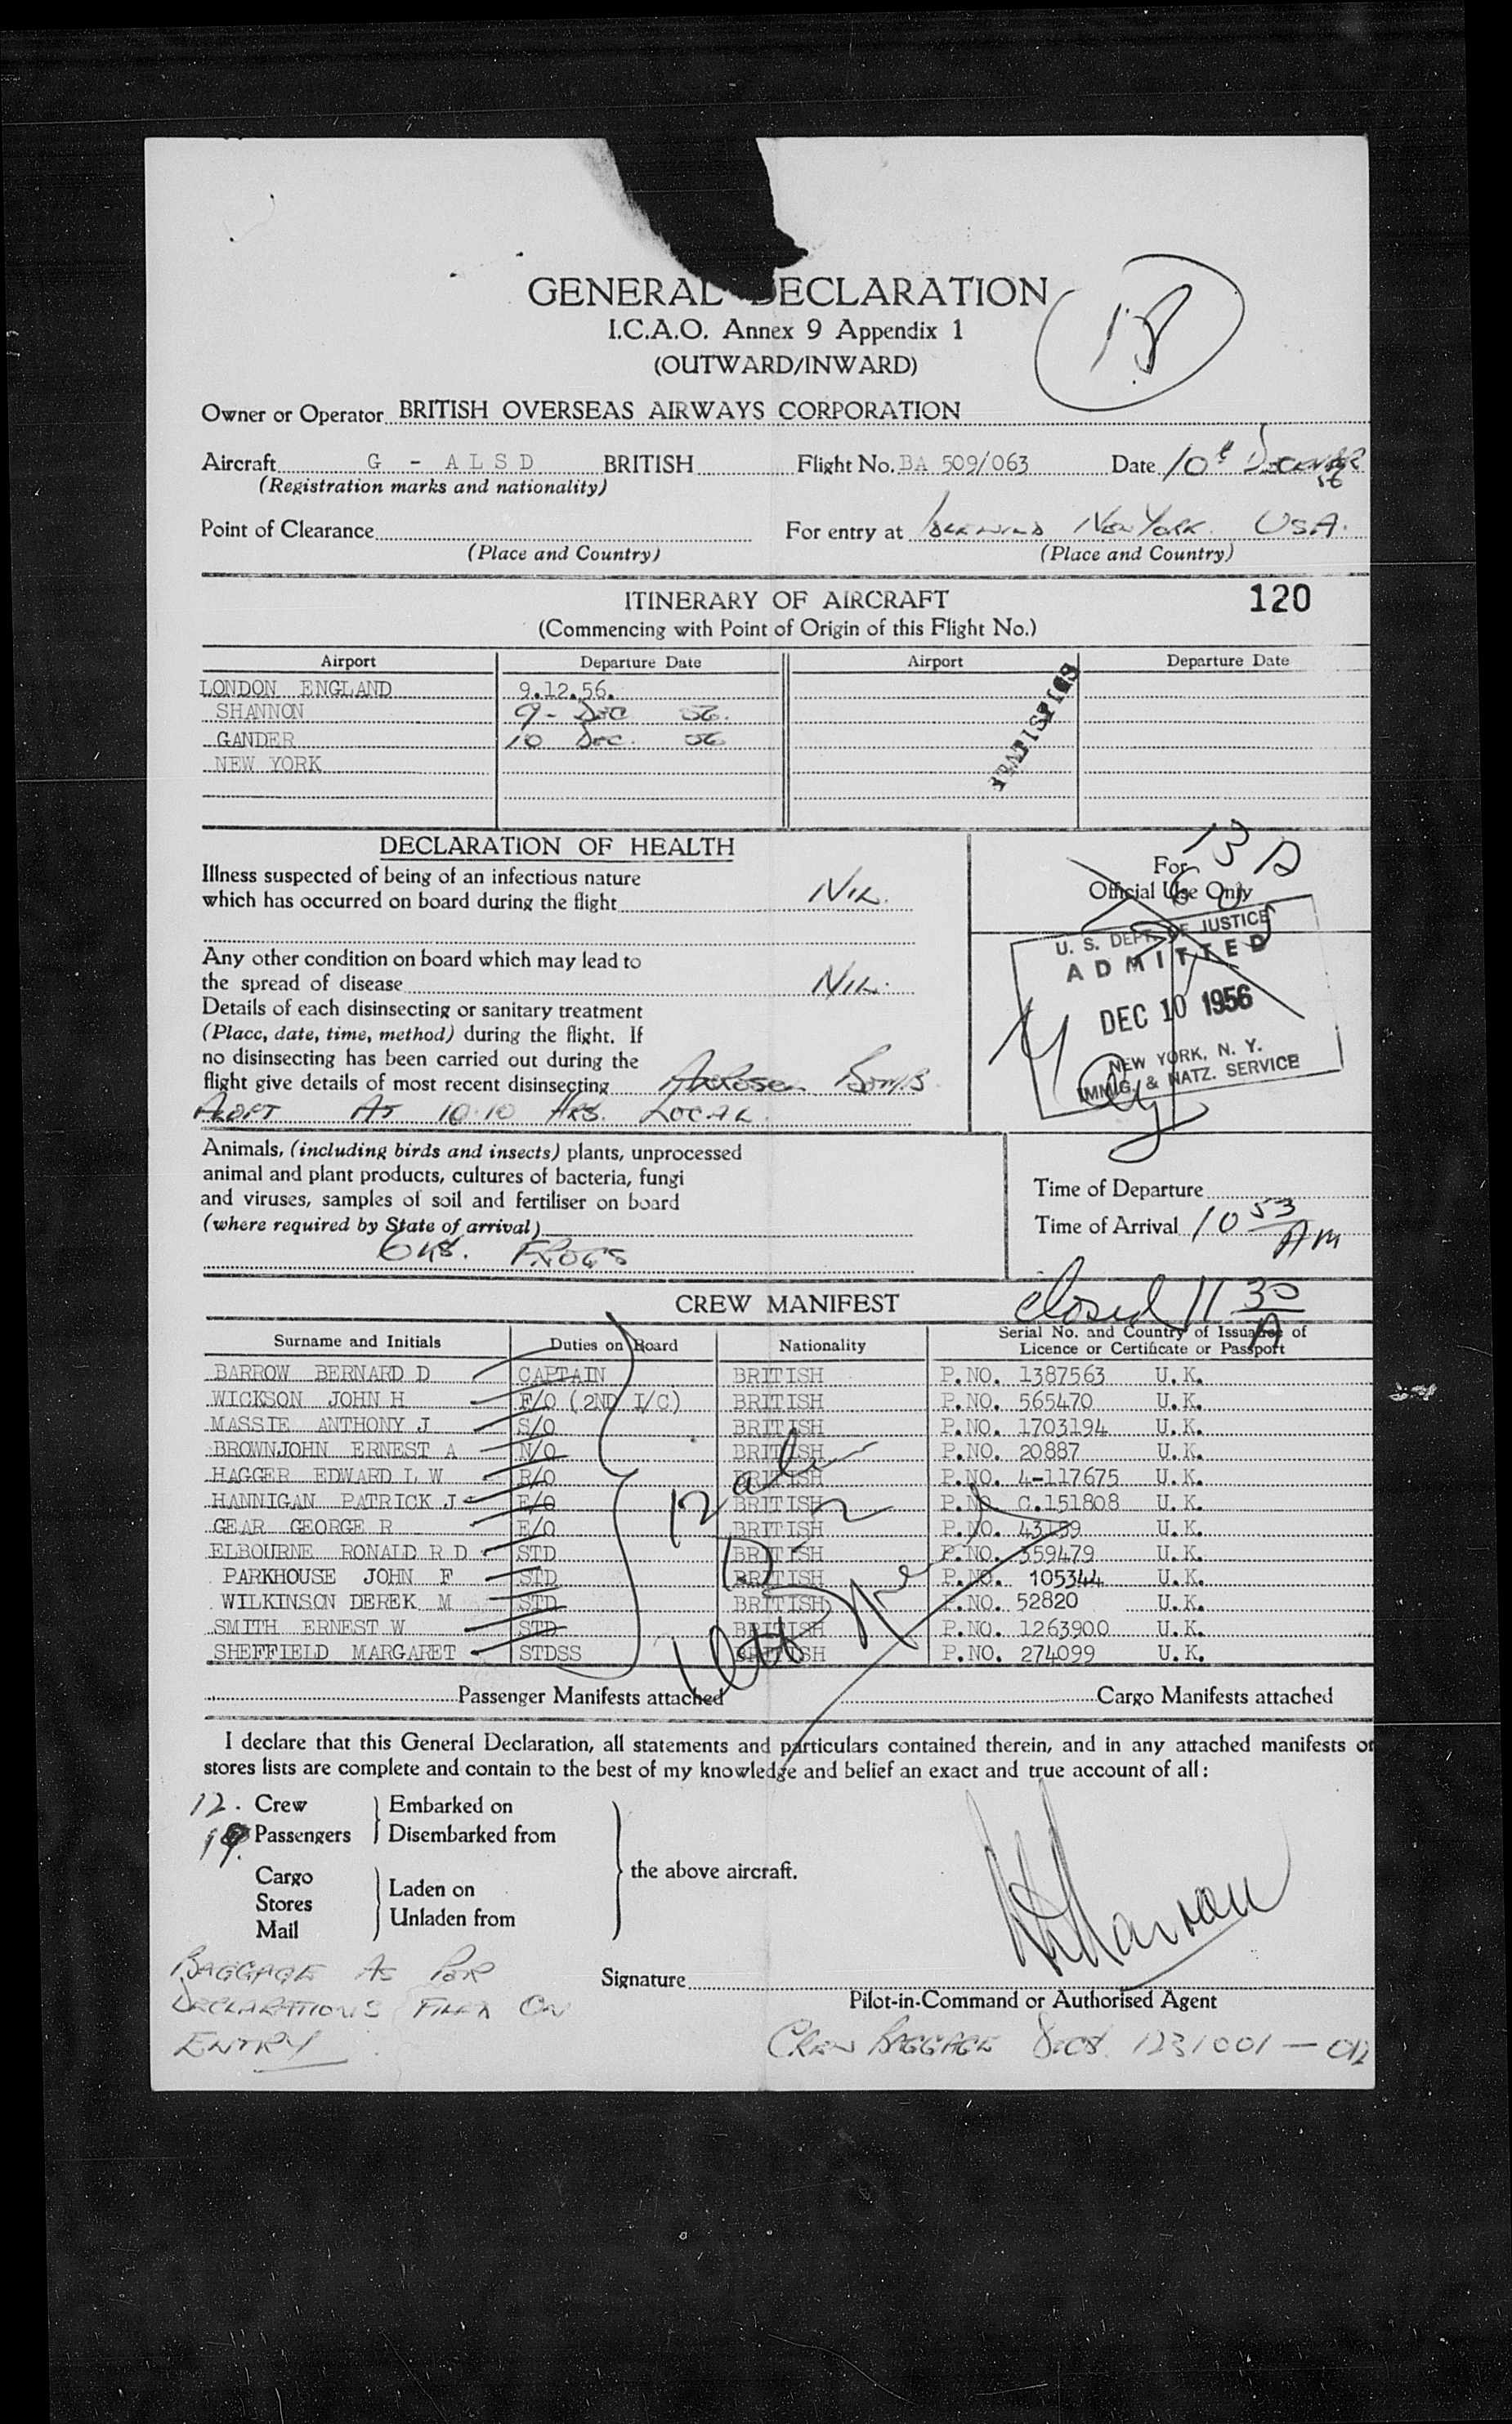 GENERAL DECLARATION
I.C.A.O. Annex 9 Appendix 1
(OUTWARD/INWARD)
Owner or Operator BRITISH OVERSEAS AIRWAYS CORPORATION
Aircraft G - ALSD BRITISH Flight No. BA 509/063 Date 10th December 56
(Registration marks and nationality)
Point of Clearance For entry at Idlewild New York. USA.
(Place and Country) (Place and Country)
ITINERARY OF AIRCRAFT 120
(Commencing with Point of Origin of this Flight No.)
Airport Departure Date Airport Departure Date
LONDON ENGLAND 9.12.56.
SHANNON 9- Dec 56.
GANDER 10 Dec. 56
NEW YORK
DECLARATION OF HEALTH
For
Official Use Only
Illness suspected of being of an infectious nature
which has occurred on board during the flight NIL.
Any other condition on board which may lead to
the spread of disease NIL.
Details of each disinsecting or sanitary treatment
(Place, date, time, method) during the flight. If
no disinsecting has been carried out during the
flight give details of most recent disinsecting Aerosol Bombs
AT 10.10 HRS. LOCAL.
U. S. DEPT. OF JUSTICE
ADMITTED
DEC 10 1956
NEW YORK, N. Y.
IMMIG. & NATZ. SERVICE
Animals, (including birds and insects) plants, unprocessed
animal and plant products, cultures of bacteria, fungi
and viruses, samples of soil and fertiliser on board
(where required by State of arrival)
FROGS
Time of Departure
Time of Arrival 10 53 AM
closed 11 30 A
CREW MANIFEST
Surname and Initials Duties on Board Nationality Serial No. and Country of Issuance of Licence or Certificate or Passport
BARROW BERNARD D CAPTAIN BRITISH P.NO. 1387563 U.K.
WICKSON JOHN H F/O (2ND I/C) BRITISH P.NO. 565470 U.K.
MASSIE ANTHONY J S/O BRITISH P.NO. 1703194 U.K.
BROWNJOHN ERNEST A N/O BRITISH P.NO. 20887 U.K.
HAGGER EDWARD L W R/O BRITISH P.NO. 4-117675 U.K.
HANNIGAN PATRICK J E/O BRITISH P.NO. C.151808 U.K.
GEAR GEORGE R E/O BRITISH P.NO. 43159 U.K.
ELBOURNE RONALD R D STD BRITISH P.NO. 359479 U.K.
PARKHOUSE JOHN F STD BRITISH P.NO. 105344 U.K.
WILKINSON DEREK M STD BRITISH P.NO. 52820 U.K.
SMITH ERNEST W STD BRITISH P.NO. 1263900 U.K.
SHEFFIELD MARGARET STDSS BRITISH P.NO. 274099 U.K.
Passenger Manifests attached Cargo Manifests attached
I declare that this General Declaration, all statements and particulars contained therein, and in any attached manifests or
stores lists are complete and contain to the best of my knowledge and belief an exact and true account of all:
12. Crew Embarked on
Passengers Disembarked from
the above aircraft.
Cargo
Stores Laden on
Mail Unladen from
BAGGAGE AS PER
DECLARATIONS FILED ON
ENTRY
Signature
Pilot-in-Command or Authorised Agent
CREW BAGGAGE DECS. 1231001 - 012